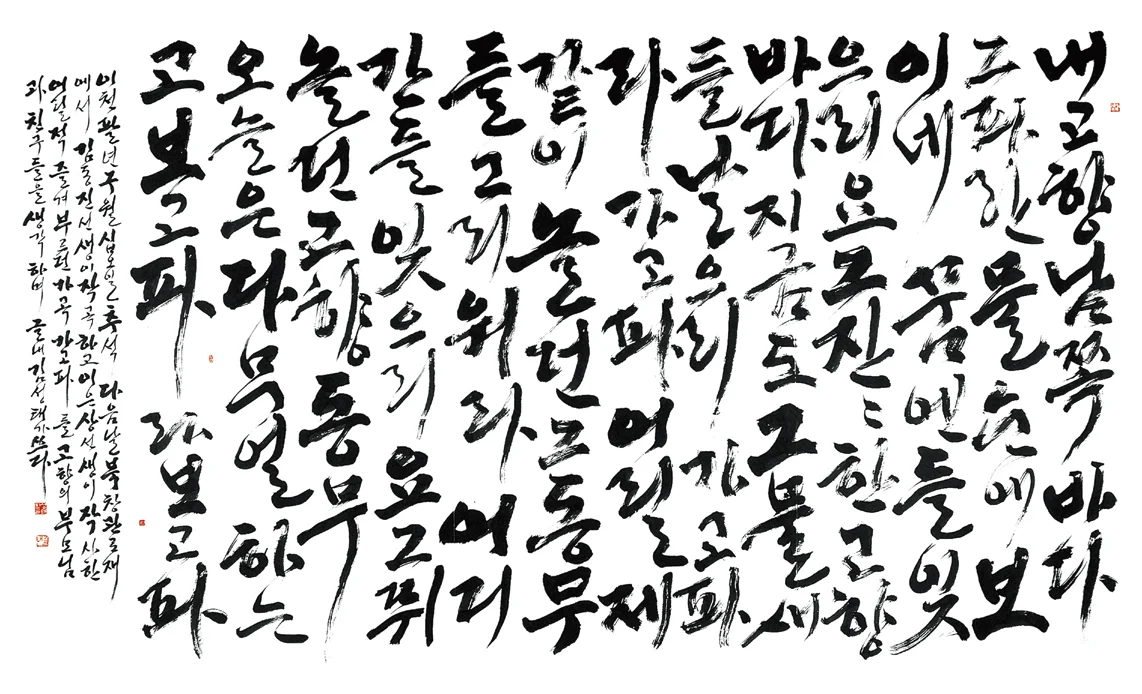 내고향남쪽바다
그파란물눈에보
이네 꿈엔들잊
으리요그잔〻한고향
바다 지금도그물새
들날으리 가고파
라 가고파 어릴제
같이 놀던그동무
들그리워라 어디
간들잊으리요그뛰
놀던고향동무
오늘은다무얼하는
고보고파 라보고파
이천팔년구월십오일추석 다음날
에서 김동진선생이작곡하고이은상선생이작사한
어릴적 즐겨부르던가곡 가고파를고향의부모님
과 친구들을생각하며 글씨김성태가쓰다